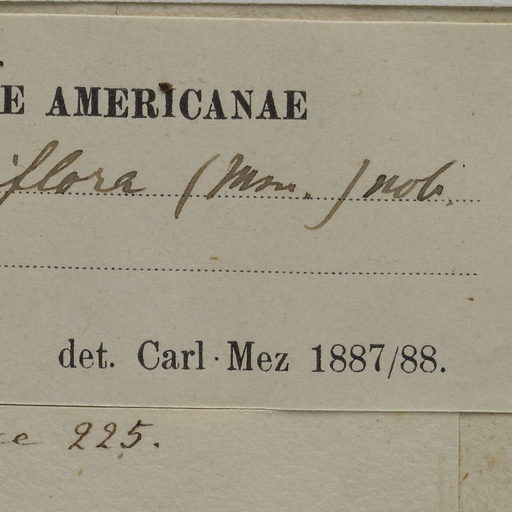 E AMERICANAE
iflora (Msn.) nob.
det. Carl Mez 1887/88.
225.